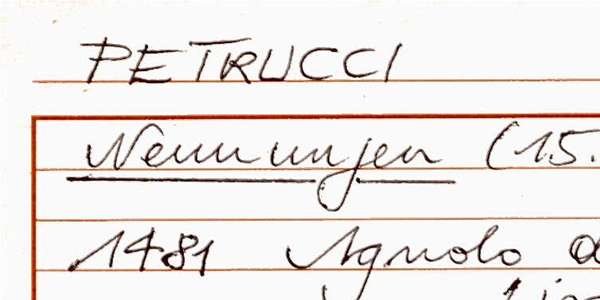 PETRUCCI
Nennungen (15.
1481 Agnolo d